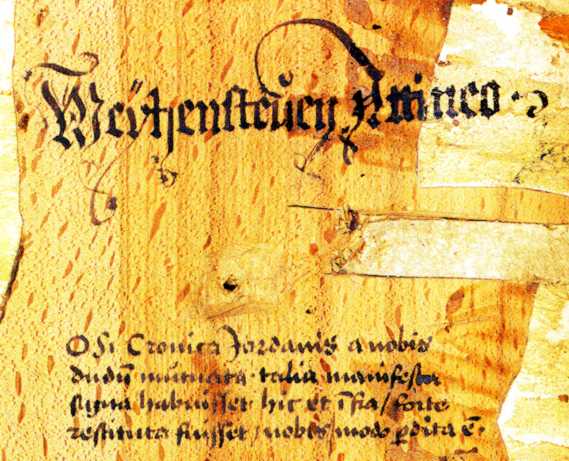 Weÿhensteuen Attineo ·
O Si Cronica Jordanis a nobis
dudū mutuata · talia manifesta
signa habuisset · hic et īfra / forte
restituta fuisset / nobis / modo ꝑdita ē ·